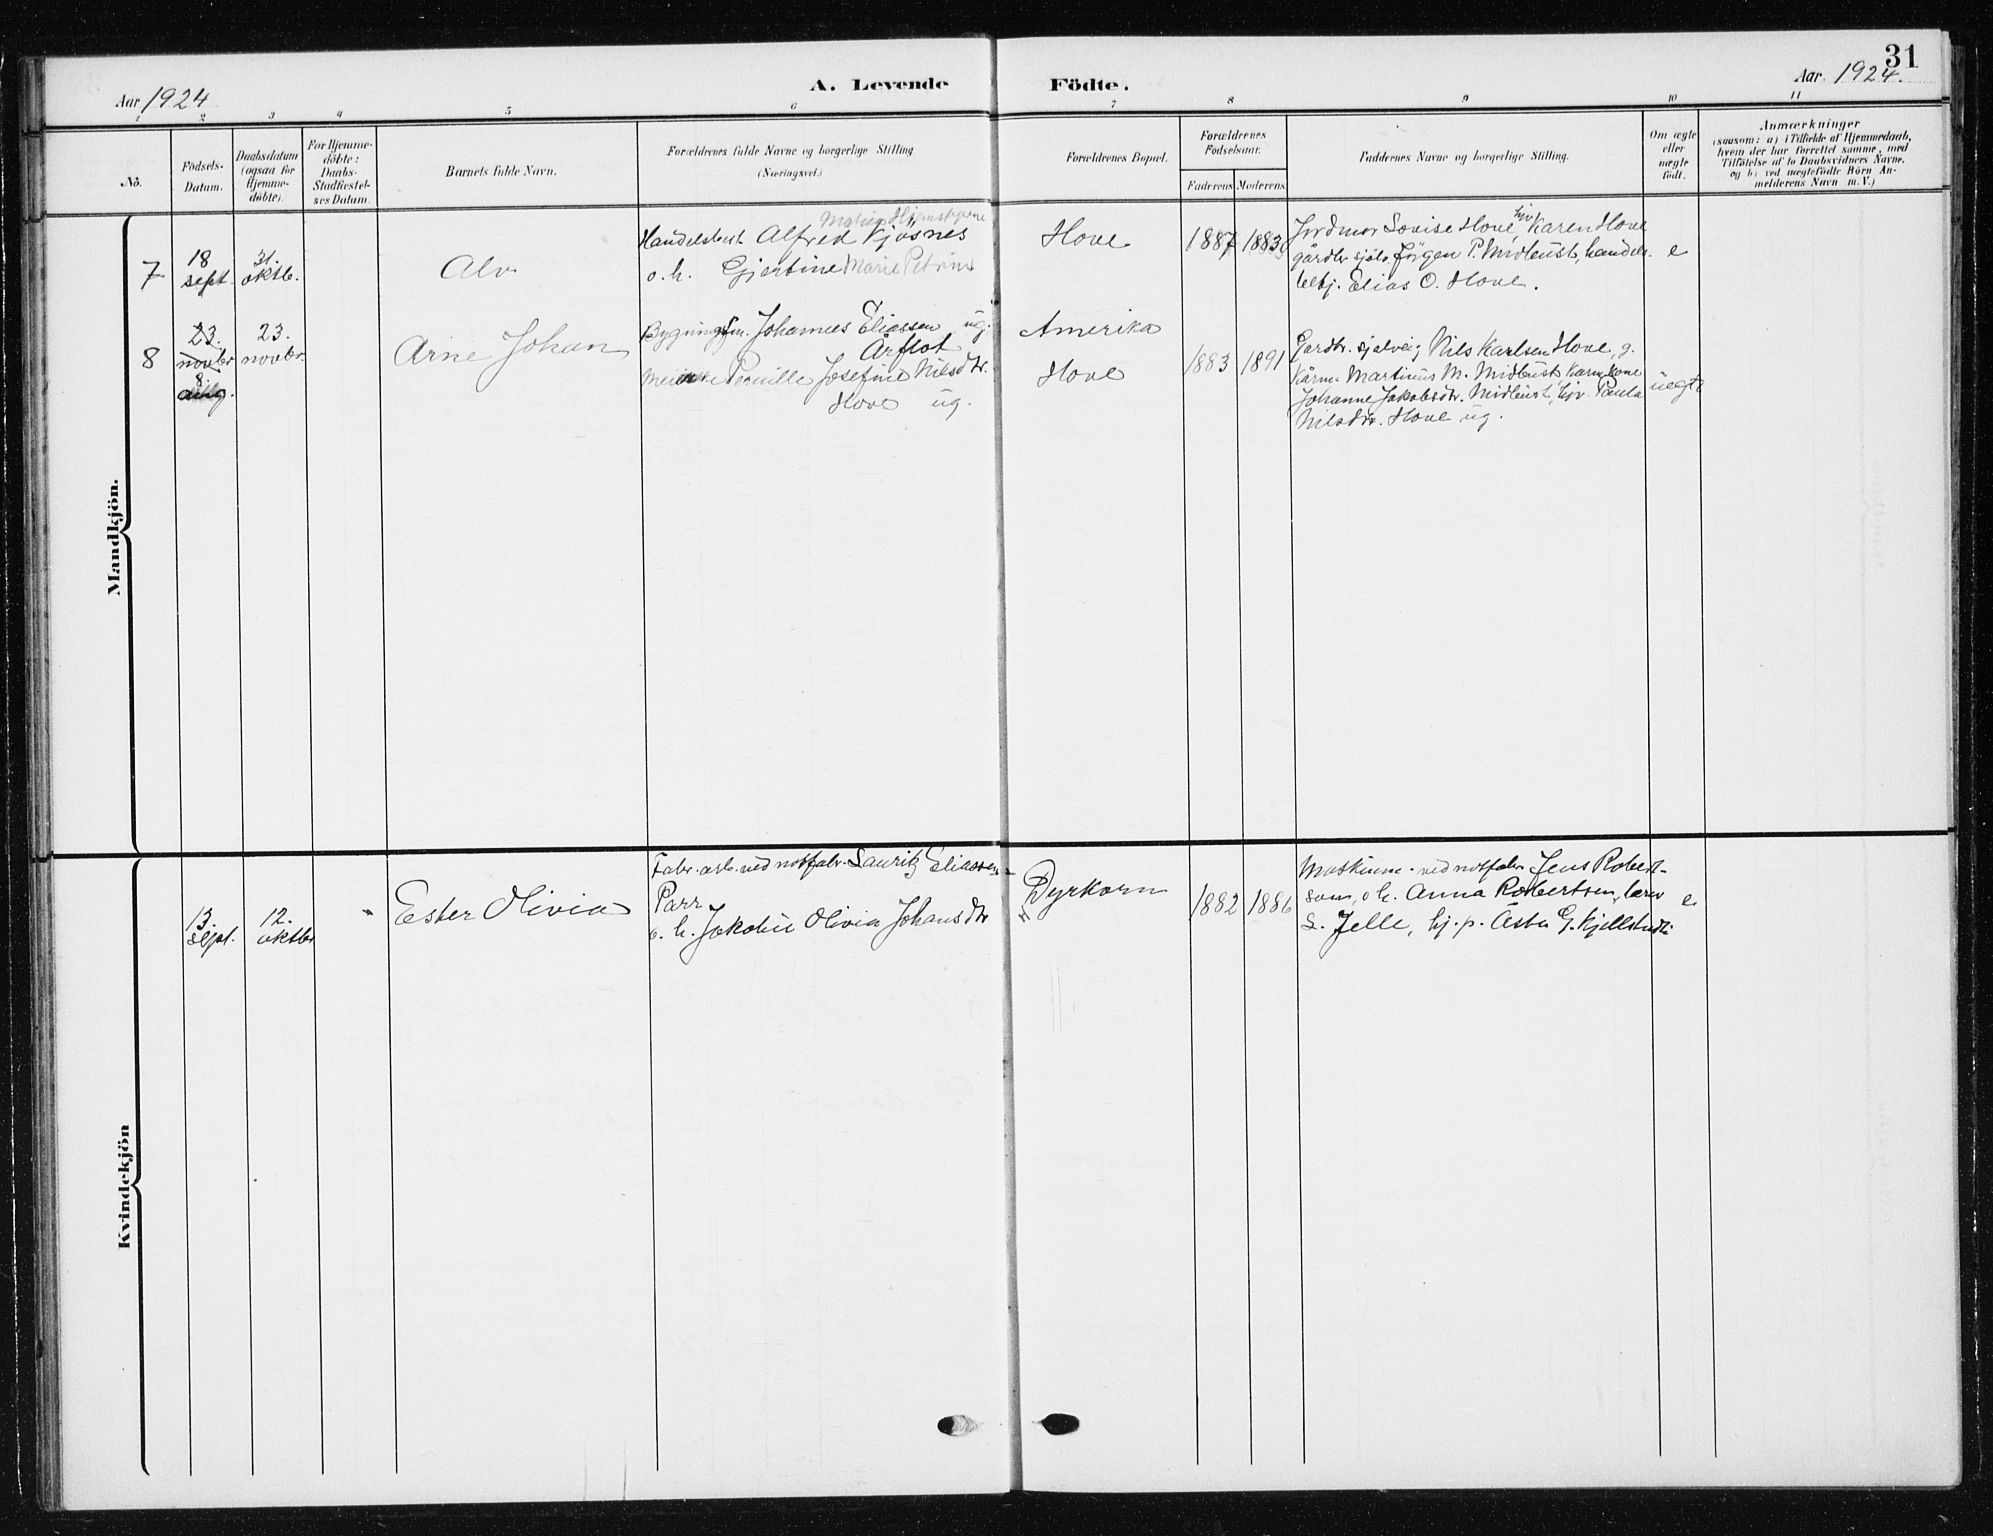 31
Aar 1924
A. Levende
Födte.
Aar. 1924.
1 2 3 4 5 6 7 8 9 10 11
No.
Födsels-
Datum.
Daabsdatum
(ogsaa for
Hjemme-
döbte).
For Hjemme-
döbte:
Daabs-
Stadfæstel-
ses Datum.
Barnets fulde Navn.
Forældrenes fulde Navne og borgerlige Stilling
(Næringsvei.)
Forældrenes Bopæl.
Forældrenes
Födselsaar.
Faderens Moderens
Faddernes Navne og borgerlige Stilling.
Om ægte
eller
uægte
født.
Anmærkninger
(saasom: a) i Tilfælde af Hjemmedaab,
hvem der har forrettet samme, med
Tilføielse af to Daabsvidners Navne.
og b) ved uægtefödte Börn An-
melderens Navn m. V.)
Mandkjön.
7
18
sept.
31.
oktb.
Alv
Handelsbest. Alfred Kjøsnes
o. h. Gjertine Marie Petrine
Hove
1887 1883
Jordmor Lovise Hove Karen Hove
gårdbr. sjølv. Jørgen P. Midtcust, handels-
betj. Elias O. Hove.
e
8
23.
novbr
8
aug.
23.
novbr.
Arne Johan
Johannes Eliassen ug.
Årflot
Pernille Josefine Nilsdtr.
Hove ug.
Amerika
Hove
1883 1891
Gardbr. sjølveig Nils Karlsen Hove, g.
Kårm. Martinus M. Midtbust Kårmkone
Johanne Jakobsdtr. Midtbust, Paula
Nilsdtr. Hove ug.
uegte
Kvindekjön
13.
sept.
12.
oktbr
Ester Olivia
Fabr. arb. ved notfabr. Lauritz Eliassen
Parr
o. h. Jakobie Olivia Johansdtr
Dyrkorn
1882 1886
Maskinm. ved notfabr Jens Robert-
sen, o h. Anna Robertsen, lærer
L. Jelle, hj. p. Åsta G. Kjellstadli
e.